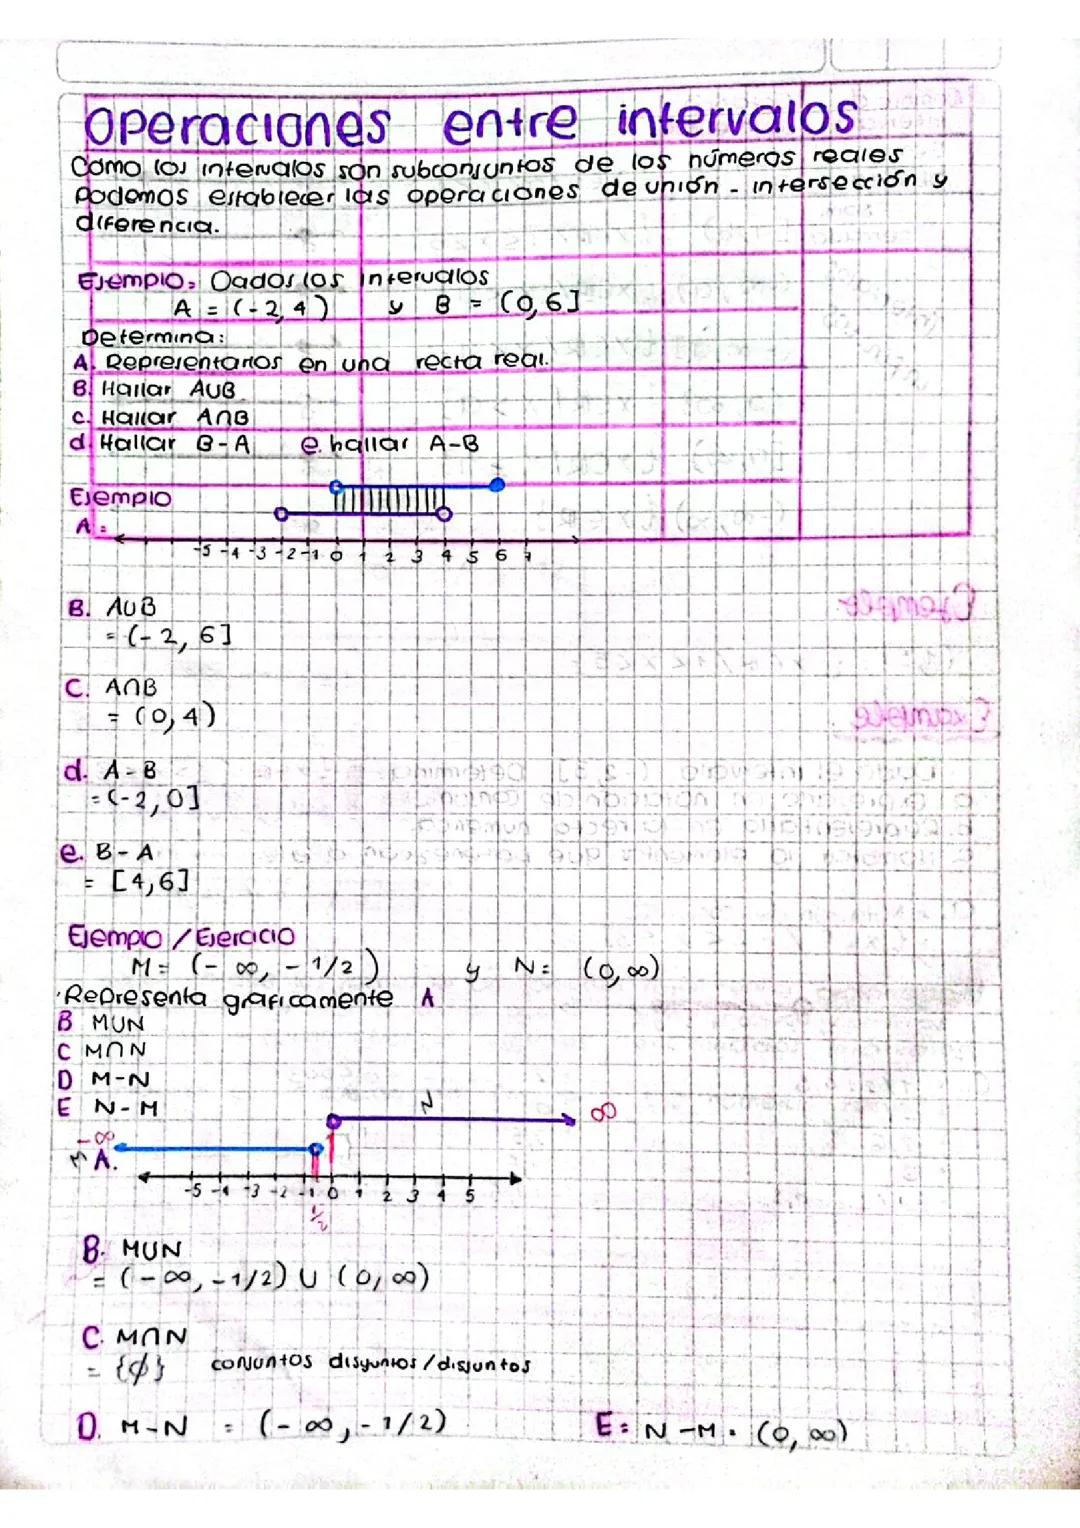 Operaciones entre intervalos
Como los intervalos son subconjuntos de los números reales
Podemos establecer las operaciones de unión - intersección y
diferencia.
Ejemplo: Dados los intervalos
A = (-2, 4) y B = (0, 6]
Determina:
A. Representarlos en una recta real.
B. Hallar A∪B
C. Hallar A∩B
d. Hallar B-A e. hallar A-B
Ejemplo
A =
-5 -4 -3 -2 -1 0 1 2 3 4 5 6 7
B. A∪B
= (-2, 6]
C. A∩B
= (0, 4)
d. A-B
= (-2, 0]
e. B-A
= [4, 6]
Ejemplo / Ejercicio
M = (-∞, -1/2) y N = (0, ∞)
Representa graficamente A
B M∪N
C M∩N
D M-N
E N-M
N ∞
-∞
M A.
-5 -4 -3 -2 -1 0 1 2 3 4 5
1/2
B. M∪N
= (-∞, -1/2) ∪ (0, ∞)
C. M∩N
= {∅} conjuntos disyuntos / disjuntos
D. M-N = (-∞, -1/2) E: N-M = (0, ∞)